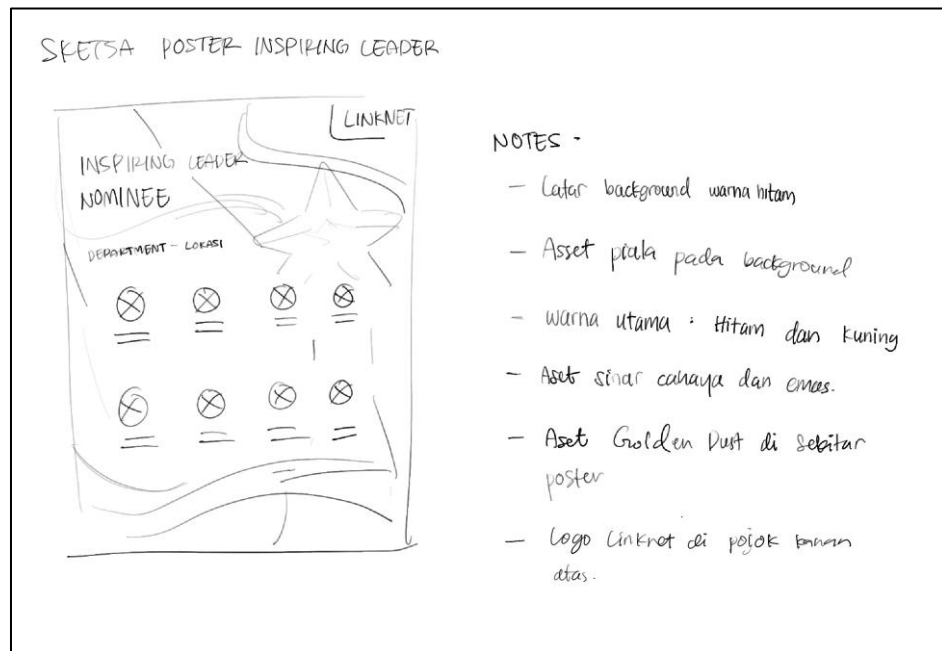 SKETSA POSTER INSPIRING LEADER
LINKNET
INSPIRING LEADER
NOMINEE
DEPARTMENT - LOKASI
NOTES -
- Latar background warna hitam
- Asset piala pada background
- warna utama : Hitam dan kuning
- Aset sinar cahaya dan emas.
- Aset Golden Dust di sekitar
poster
- Logo Linknet di pojok kanan
atas.